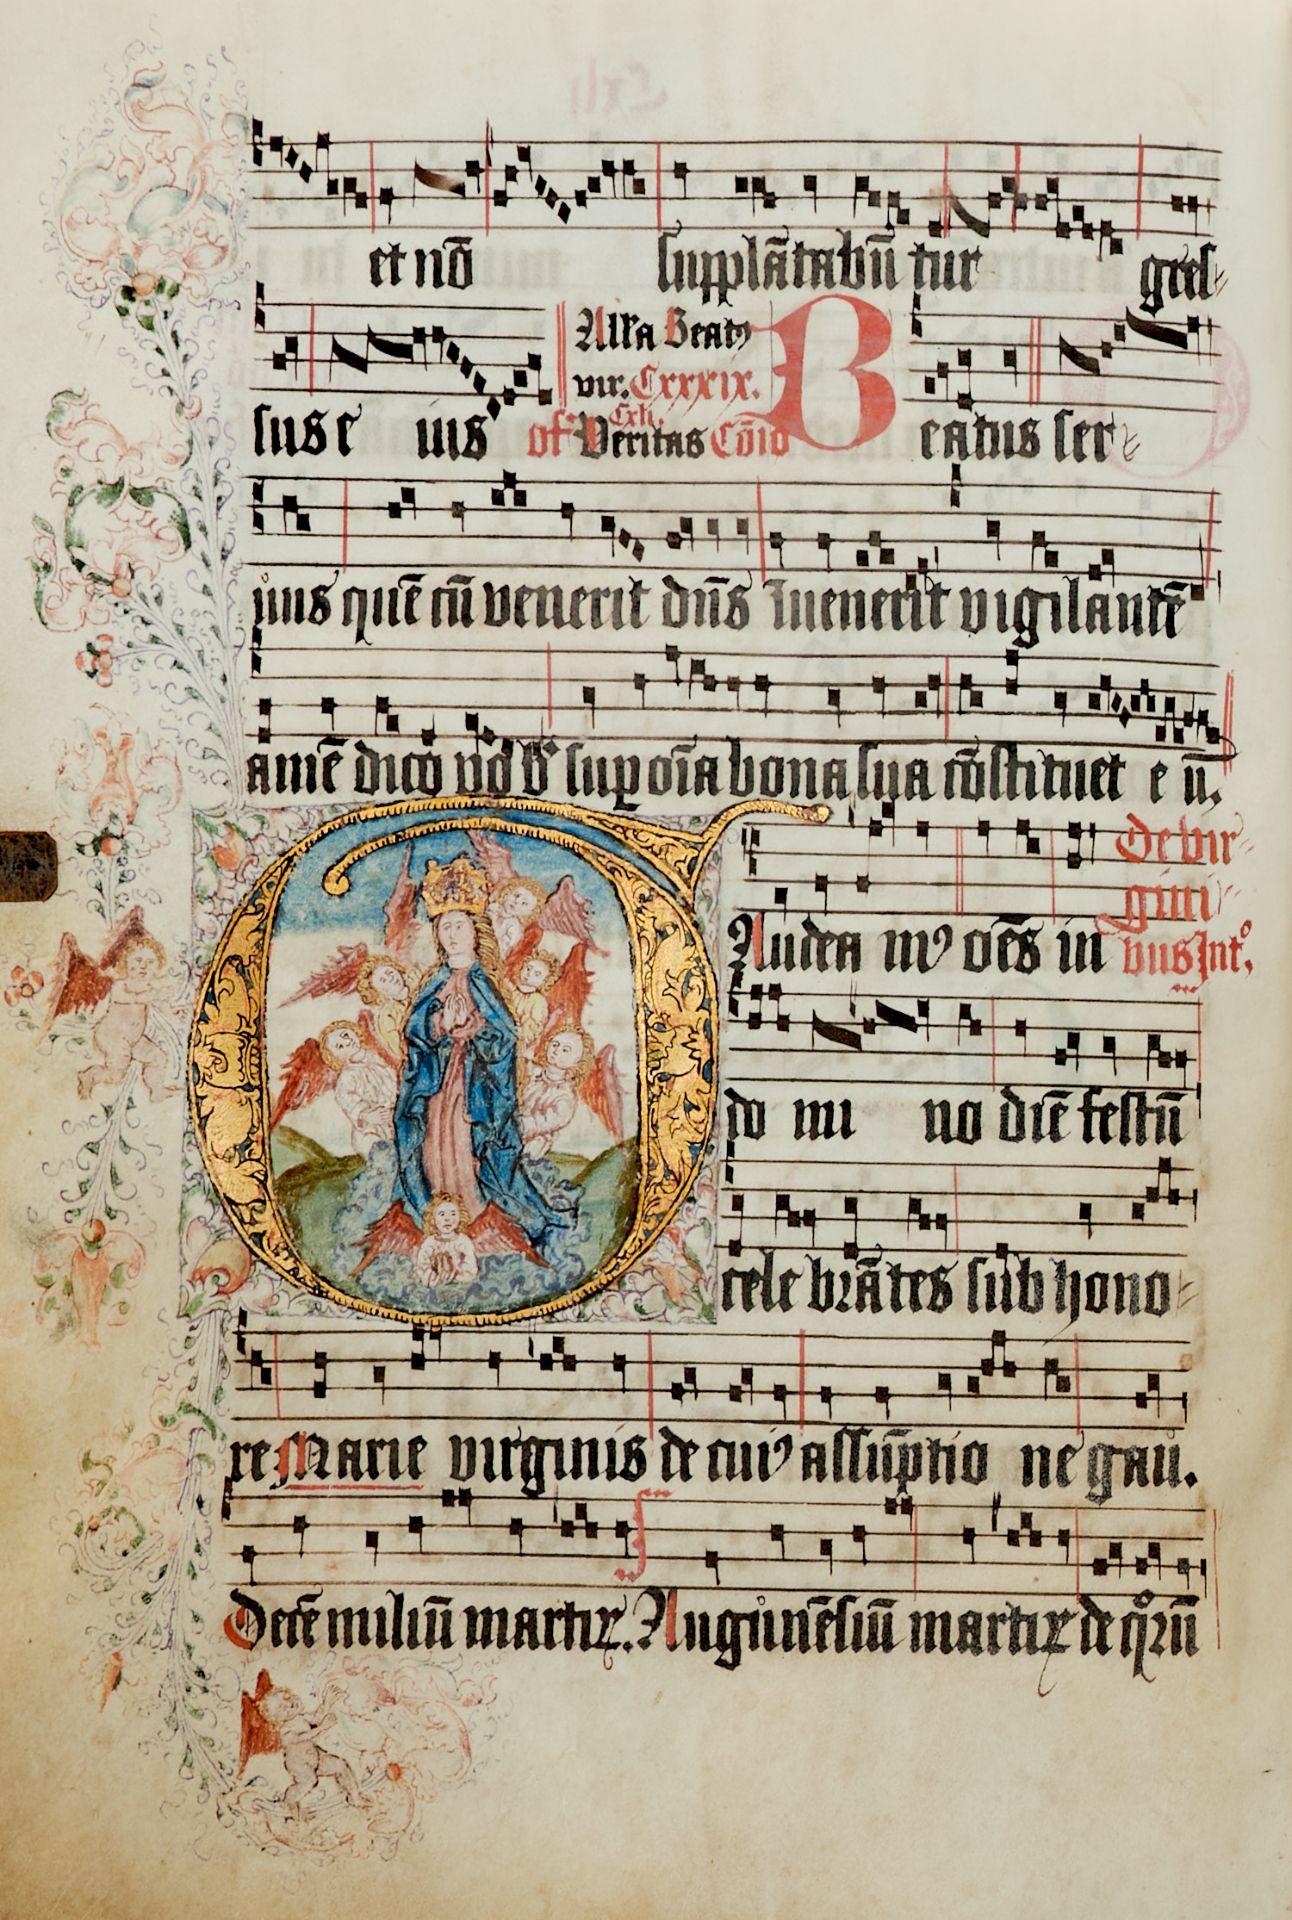 et nō supplātabūtur gres⸗
sus e ius
Alla Beatꝰ
vir. Cxxxix.
Cxli.
of Veritas Cōio
Beatus ser⸗
uus quē cū venerit dn̄s Inuenerit vigilantē
amē dico vob' sup oīa bona sua cōstituet e ū.
De vir⸗
gini⸗
bus Intº.
Gaudea mꝰ oēs in
do mi no diē festū
cele brātes sub hono⸗
re Marie virginis de cuiꝰ assūptio ne gaū.
Decē miliū martiꝝ. Augūnēsiū martiꝝ de qͦrū